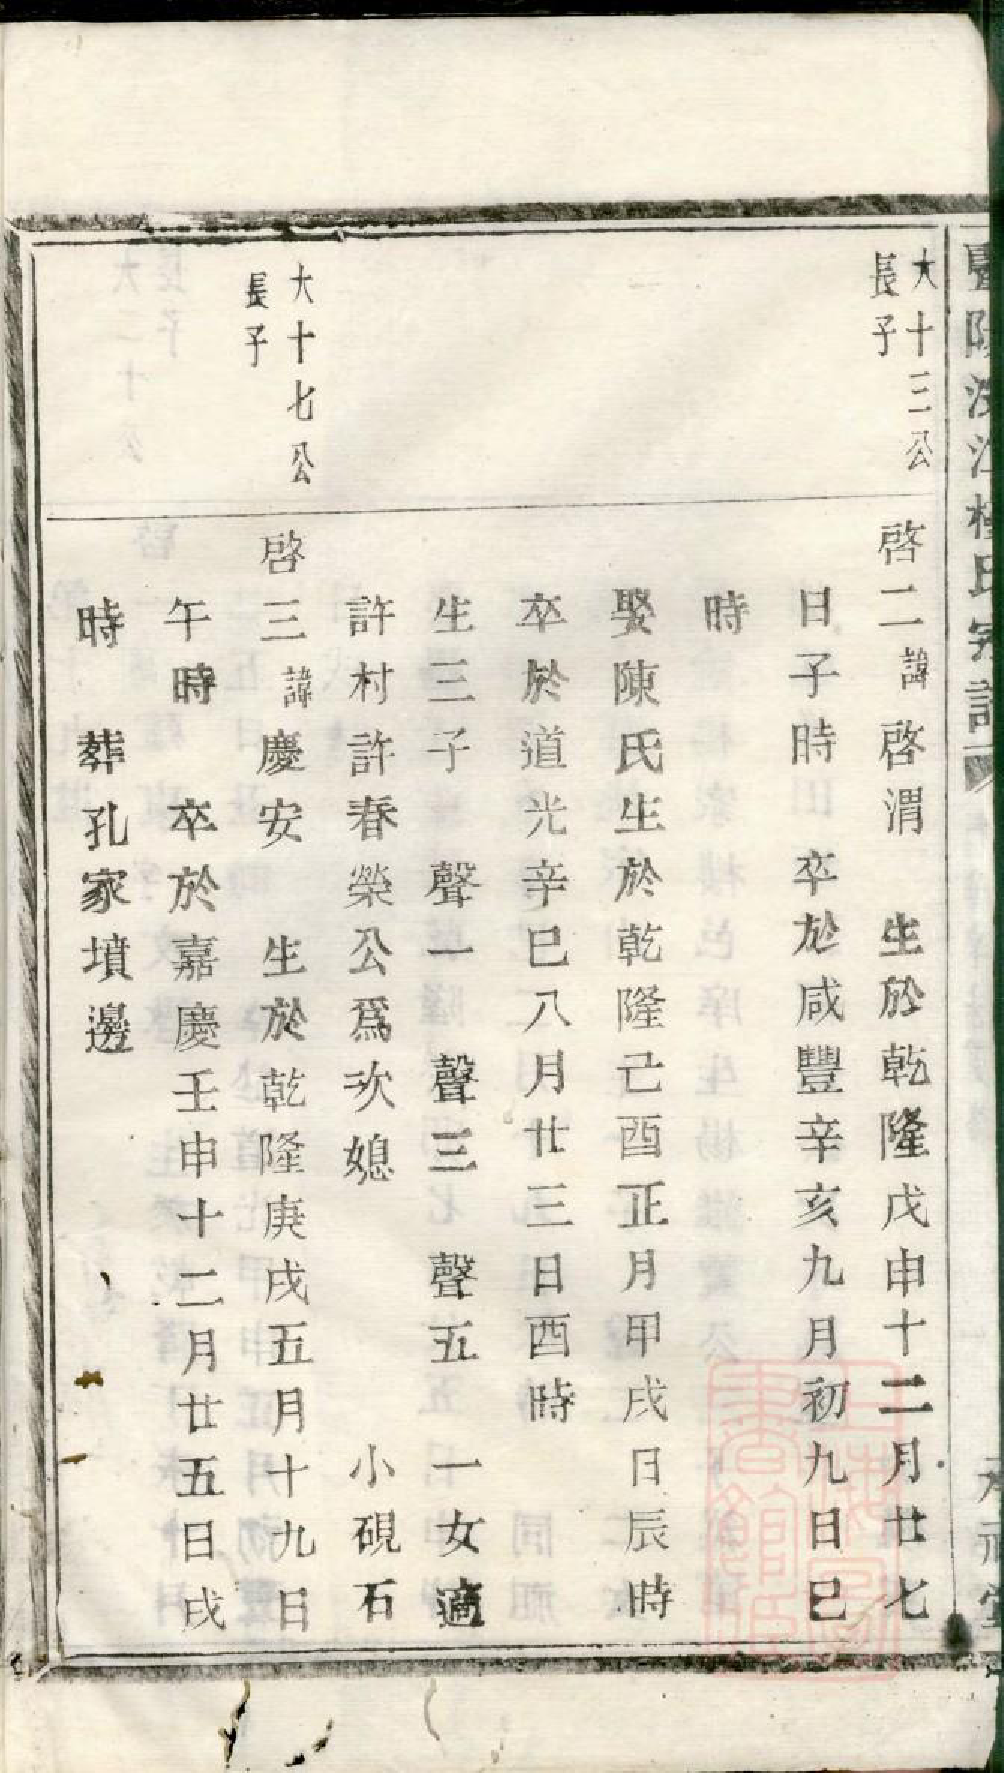 大十三公
長子
啓二諱啓渭　生於乾隆戊申十二月廿七
日子時　卒於咸豐辛亥九月初九日巳
時
娶陳氏生於乾隆己酉正月甲戌日辰時
卒於道光辛巳八月廿三日酉時
生三子　聲一　聲三　聲五　一女適
許村許春榮公爲次媳　　　小硯石
大十七公
長子
啓三諱慶安　生於乾隆庚戌五月十九日
午時　卒於嘉慶壬申十二月廿五日戌
時　葬孔家墳邊